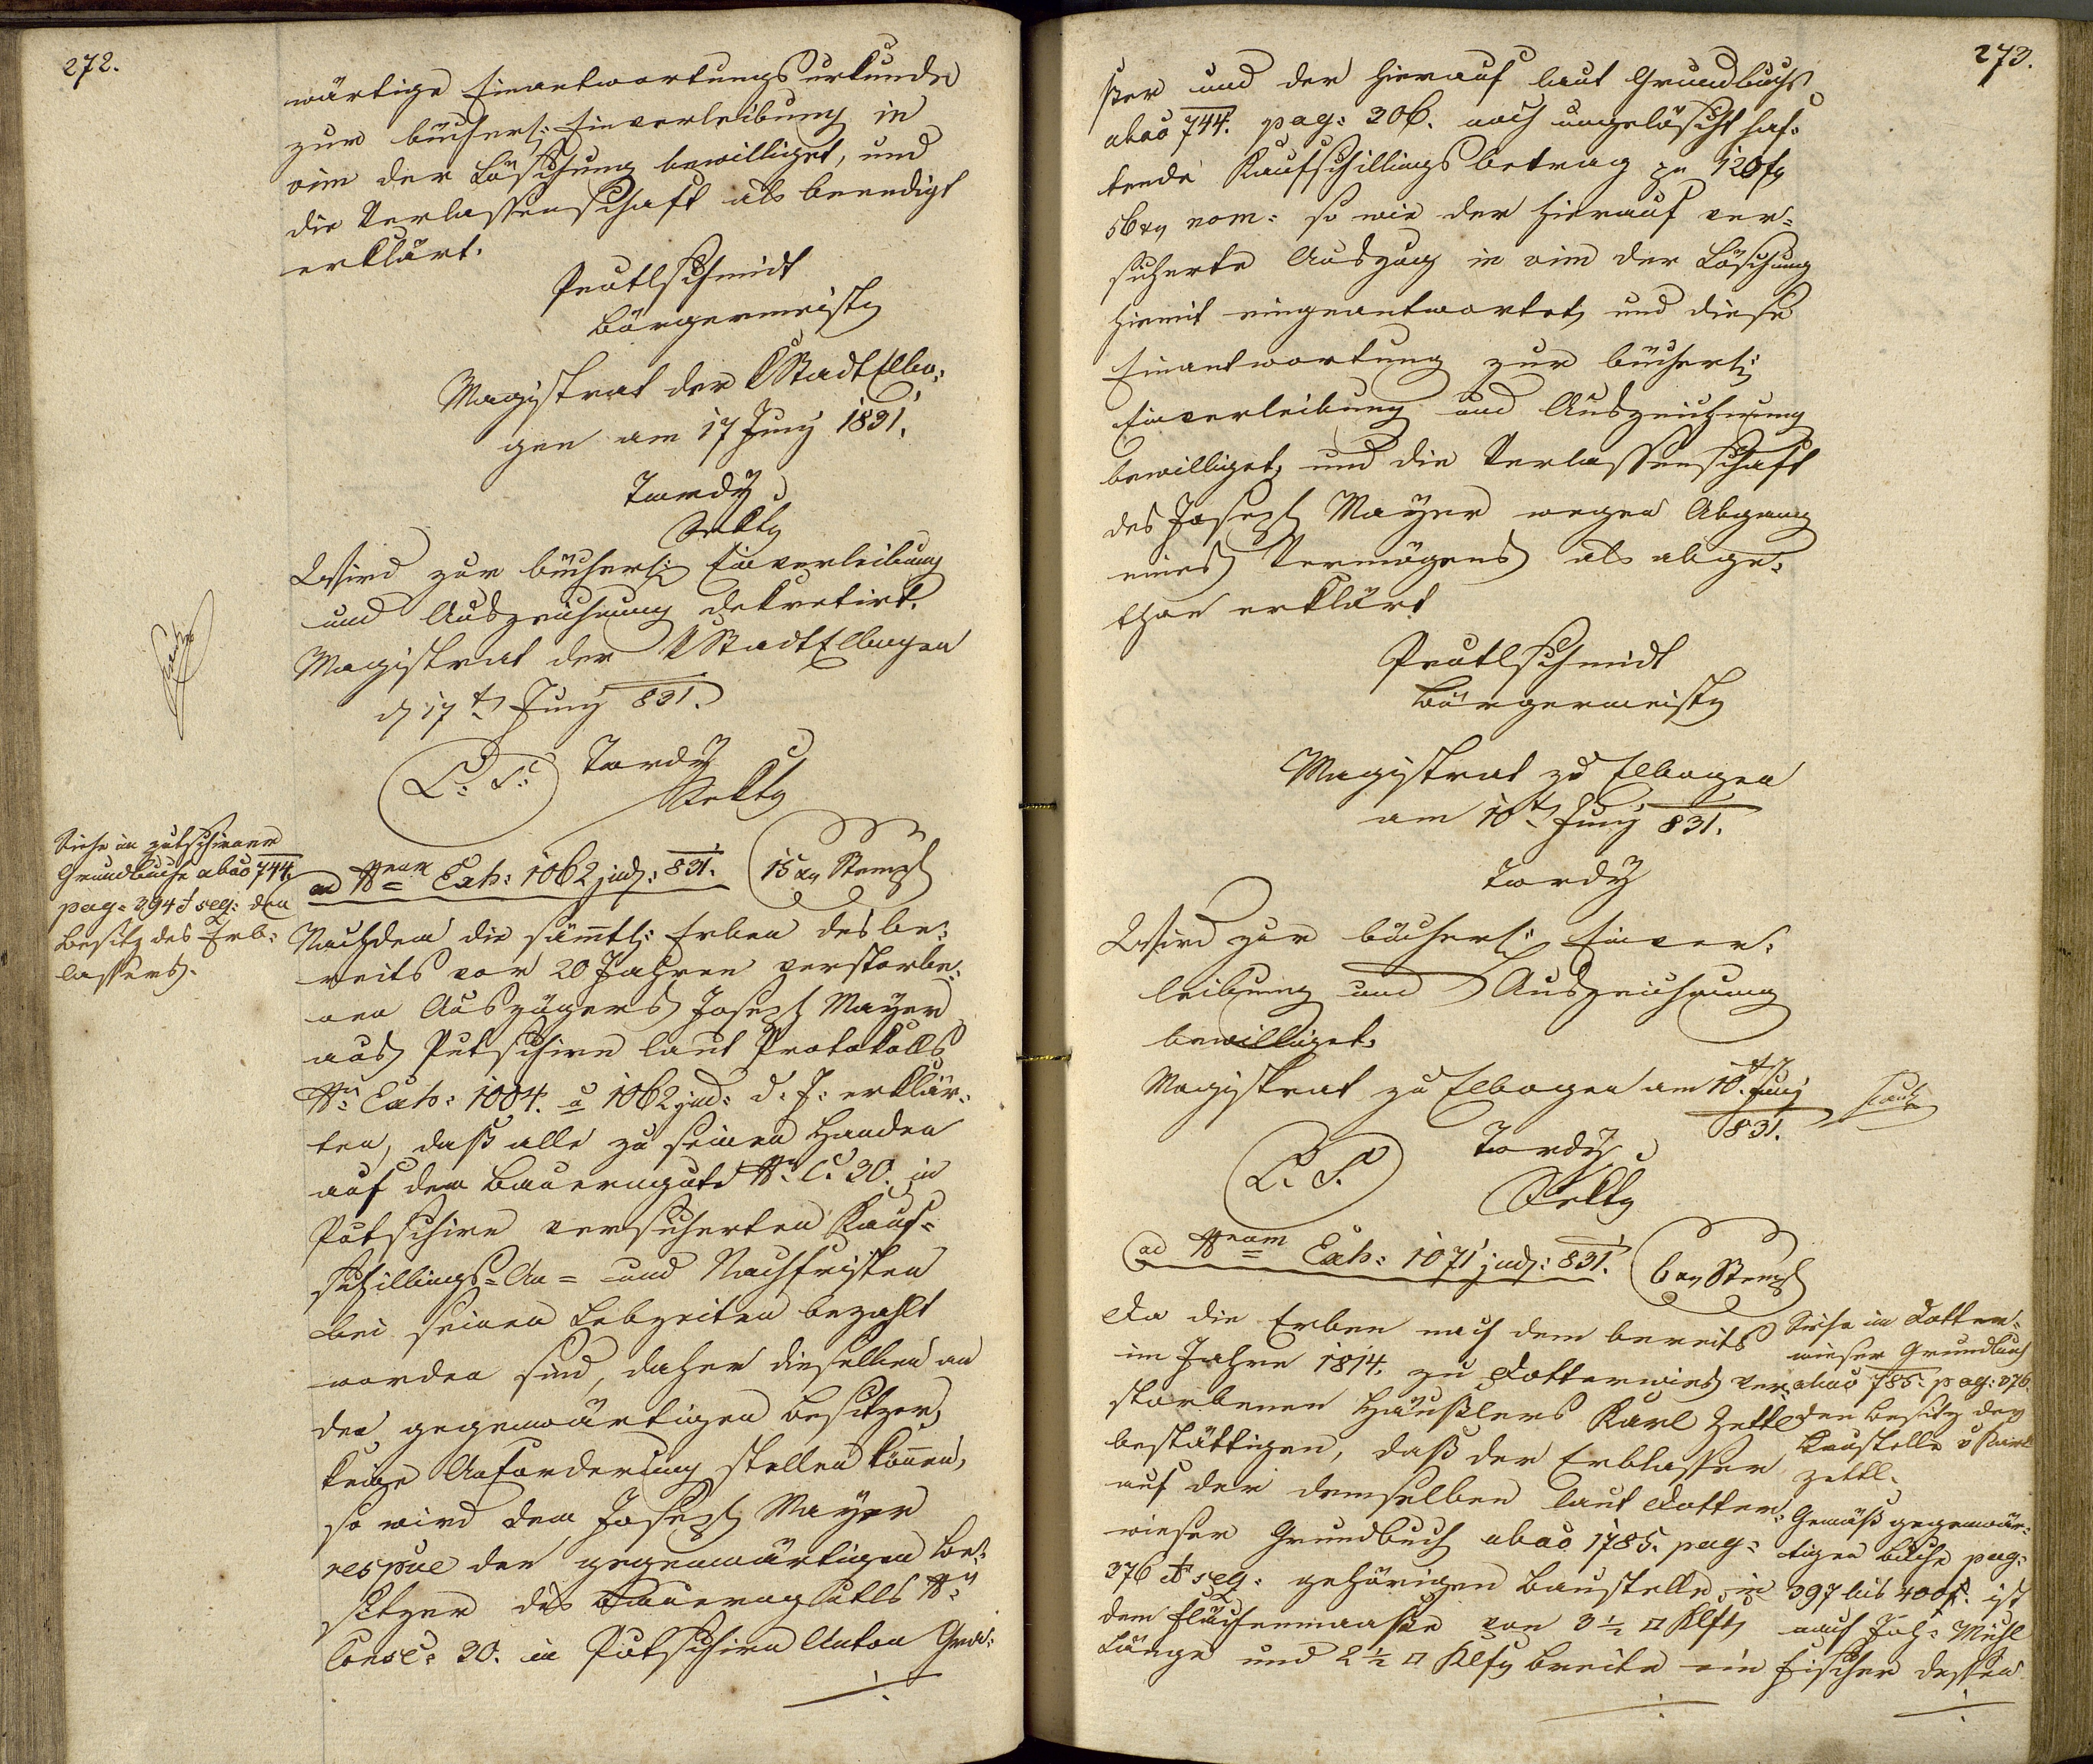 272.
wärtige Einantwortungsurkunde
zur bücherl: Einverleibung in
vim der Löschung bewilliget, und
die Verlassenschaft als beendigt
erklärt.
Bürgermeister
Magistrat der K Stadt Elbo=
gen am 17 Juny 1831.
Tardy
Sekty
Wird zur bücherl: Einverleibung
und Auszeichnung dekretirt.
Magistrat der K Stadt Elbogen
d 17t Juny 831.
L. S. Tardy
Sekty
Siehe im putschirner
Grundbuche abao 744.
pag: 394 et seq: den
Besitz des Erb=
lassers.
ad Nrum Exh: 1062 jud: 831. 15 xr Stempl
Nachdem die sämtl: Erben des be=
reits vor 20 Jahren verstorbe=
nen Auszügers Joseph Mayer
aus Putschirn laut Protokolls
Nr. Exh: 1004. u 1062 jud: d. J: erklär=
ten, daß alle zu seinen Handen
auf dem Bauerngute Nr. C. 30. in
Putschirn versicherten Kauf=
schillings=An= und Nachfristen
bei seinen Lebzeiten bezahlt
worden sind, daher dieselben an
den gegenwärtigen Besitzer,
keine Anforderung stellen könen,
so wird dem Joseph Mayer
respue dem gegenwärtigen Be=
sitzer des Bauernguttls Nr.
Consc: 30. in Putschirn Anton
273.
und der hierauf laut Grundbuchs
abao 744. pag: 306. noch ungelöscht haf=
tende Kaufschillingsbetrag pr 120 f
56 xr nom: so wie der hierauf ver=
sicherte Auszug in vim der Löschung
hiemit eingeantwortet, und diese
Einantwortung zur bücherl:
Einverleibung und Auszeichnung
bewilliget, und die Verlassenschaft
des Joseph Mayer wegen Abgang
eines Vermögens als abge=
than erklärt
Bürgermeister
Magistrat zu Elbogen
am 10t Juny 831.
Tardy
Wird zur bücherl: Einver=
leibung und Auszeichnung
bewilliget.
Magistrat zu Elbogen am 10t Juny
831.
L. S. Tardy
Sekty
ad Nrum Exh: 1071 jud: 831. 6 xr Stempl
Da die Erben nach dem bereits
im Jahre 1814. zu Dotterwies ver=
storbenen Häußlers Karl Zettl
bestättigen, daß der Erblasser
auf der demselben laut Dotter=
wieser Grundbuch abao 1785. pag:
376 et seq: gehörigen Baustelle, im
dem Flächenmaaße von 3 1/2 □ Klftr
Länge und 2 1/2 □ Klftr Breite ein
Siehe im Dotter=
wieser Grundbuch
abao 785. pag: 376
den Besitz der
Baustelle v Karl
Zettl.
Gemäß gegenwär=
tigen Buche pag:
397 bis 400. ist
nach Joh: Michl
Fischer dessen